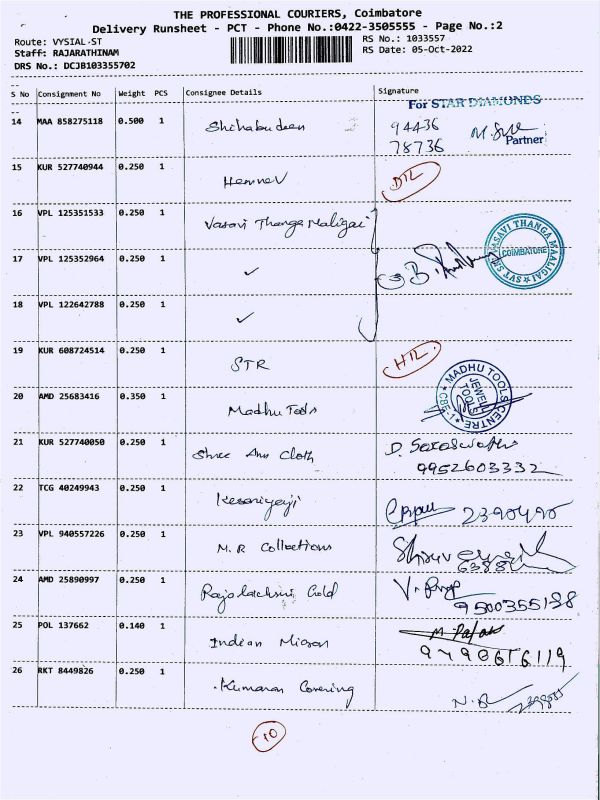 THE PROFESSIONAL COURIERS, Coimbatore
Delivery Runsheet - PCT - Phone No.:0422-3505555 - Page No.:2
Route: VYSIAL-ST
RS No.: 1033557
Staff: RAJARATHINAM
RS Date: 05-Oct-2022
DRS No.: DCJB103355702
S No Consignment No Weight PCS Consignee Details Signature
For STAR DIAMONDS
14 MAA 858275118 0.500 1 Shihabudeen 94436
78736
Partner
15 KUR 527740944 0.250 1 DTL
16 VPL 125351533 0.250 1 Vasavi Thanga Maligai
17 VPL 125352964 0.250 1 ✓
SVT SRI VASAVI THANGA MAALIGAI
COIMBATORE
18 VPL 122642788 0.250 1 ✓
19 KUR 608724514 0.250 1 STR HTL
20 AMD 25683416 0.350 1 Madhu Tools
MADHU TOOLS CENTRE
JEWEL TOOLS
CBE-1
21 KUR 527740050 0.250 1 Shree Ann Cloth D. Saraswathi
9952603332
22 TCG 40249943 0.250 1 2390490
23 VPL 940557226 0.250 1 M.R Collections
24 AMD 25890997 0.250 1 Rajalakshmi Gold
9500355198
25 POL 137662 0.140 1 Indian Micron
26 RKT 8449826 0.250 1 Kumaran Covering
10